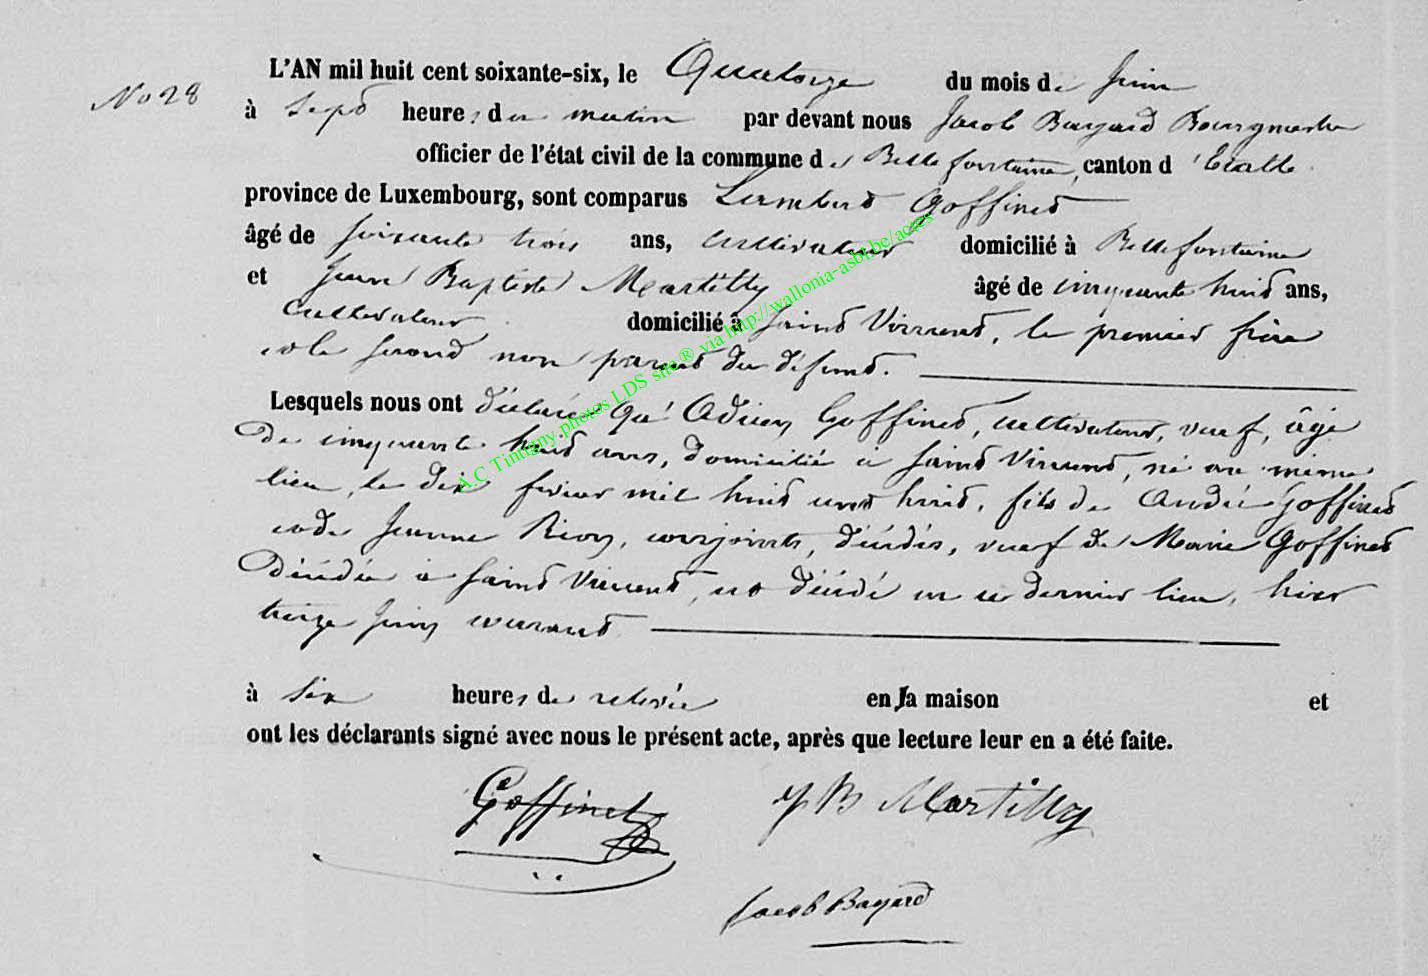 L'AN mil huit cent soixante-six, le Quatorze du mois de juin
No 28
à sept heures du matin par devant nous Jacob Bayard Bourgmestre
officier de l'état civil de la commune de Bellefontaine, canton d'Etalle
province de Luxembourg, sont comparus Lambert Goffinet
âgé de soixante trois ans, cultivateur domicilié à Bellefontaine
et Jean Baptiste Martilly âgé de cinquante huit ans,
cultivateur domicilié à Saint Vincent, le premier frère
et le second non parent du défunt.
Lesquels nous ont déclaré qu' Goffinet, cultivateur, veuf, âgé
de cinquante huit ans, domicilié à Saint Vincent, né au même
lieu, le dix février mil huit cent huit, fils de André Goffinet
et de Jeanne Rion, conjoints, décédés, veuf de Marie Goffinet
décédée à Saint Vincent, est décédé en ce dernier lieu, hier
treize juin courant
à six heures de relevée en la maison et
ont les déclarants signé avec nous le présent acte, après que lecture leur en a été faite.
Goffinet J B Martilly
Jacob Bayard
A.C Tintigny photos LDS site ® via http://wallonia-asbl.be/actes